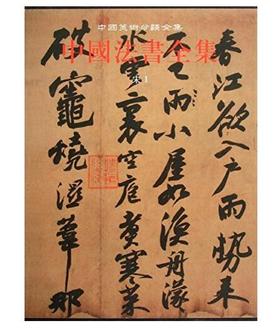 中國美術分類全集
中國法書全集
宋1
春江欲入戶雨勢來
不已雨小屋如漁舟濛
々水雲裏空庖煮寒菜
破竈燒濕葦那